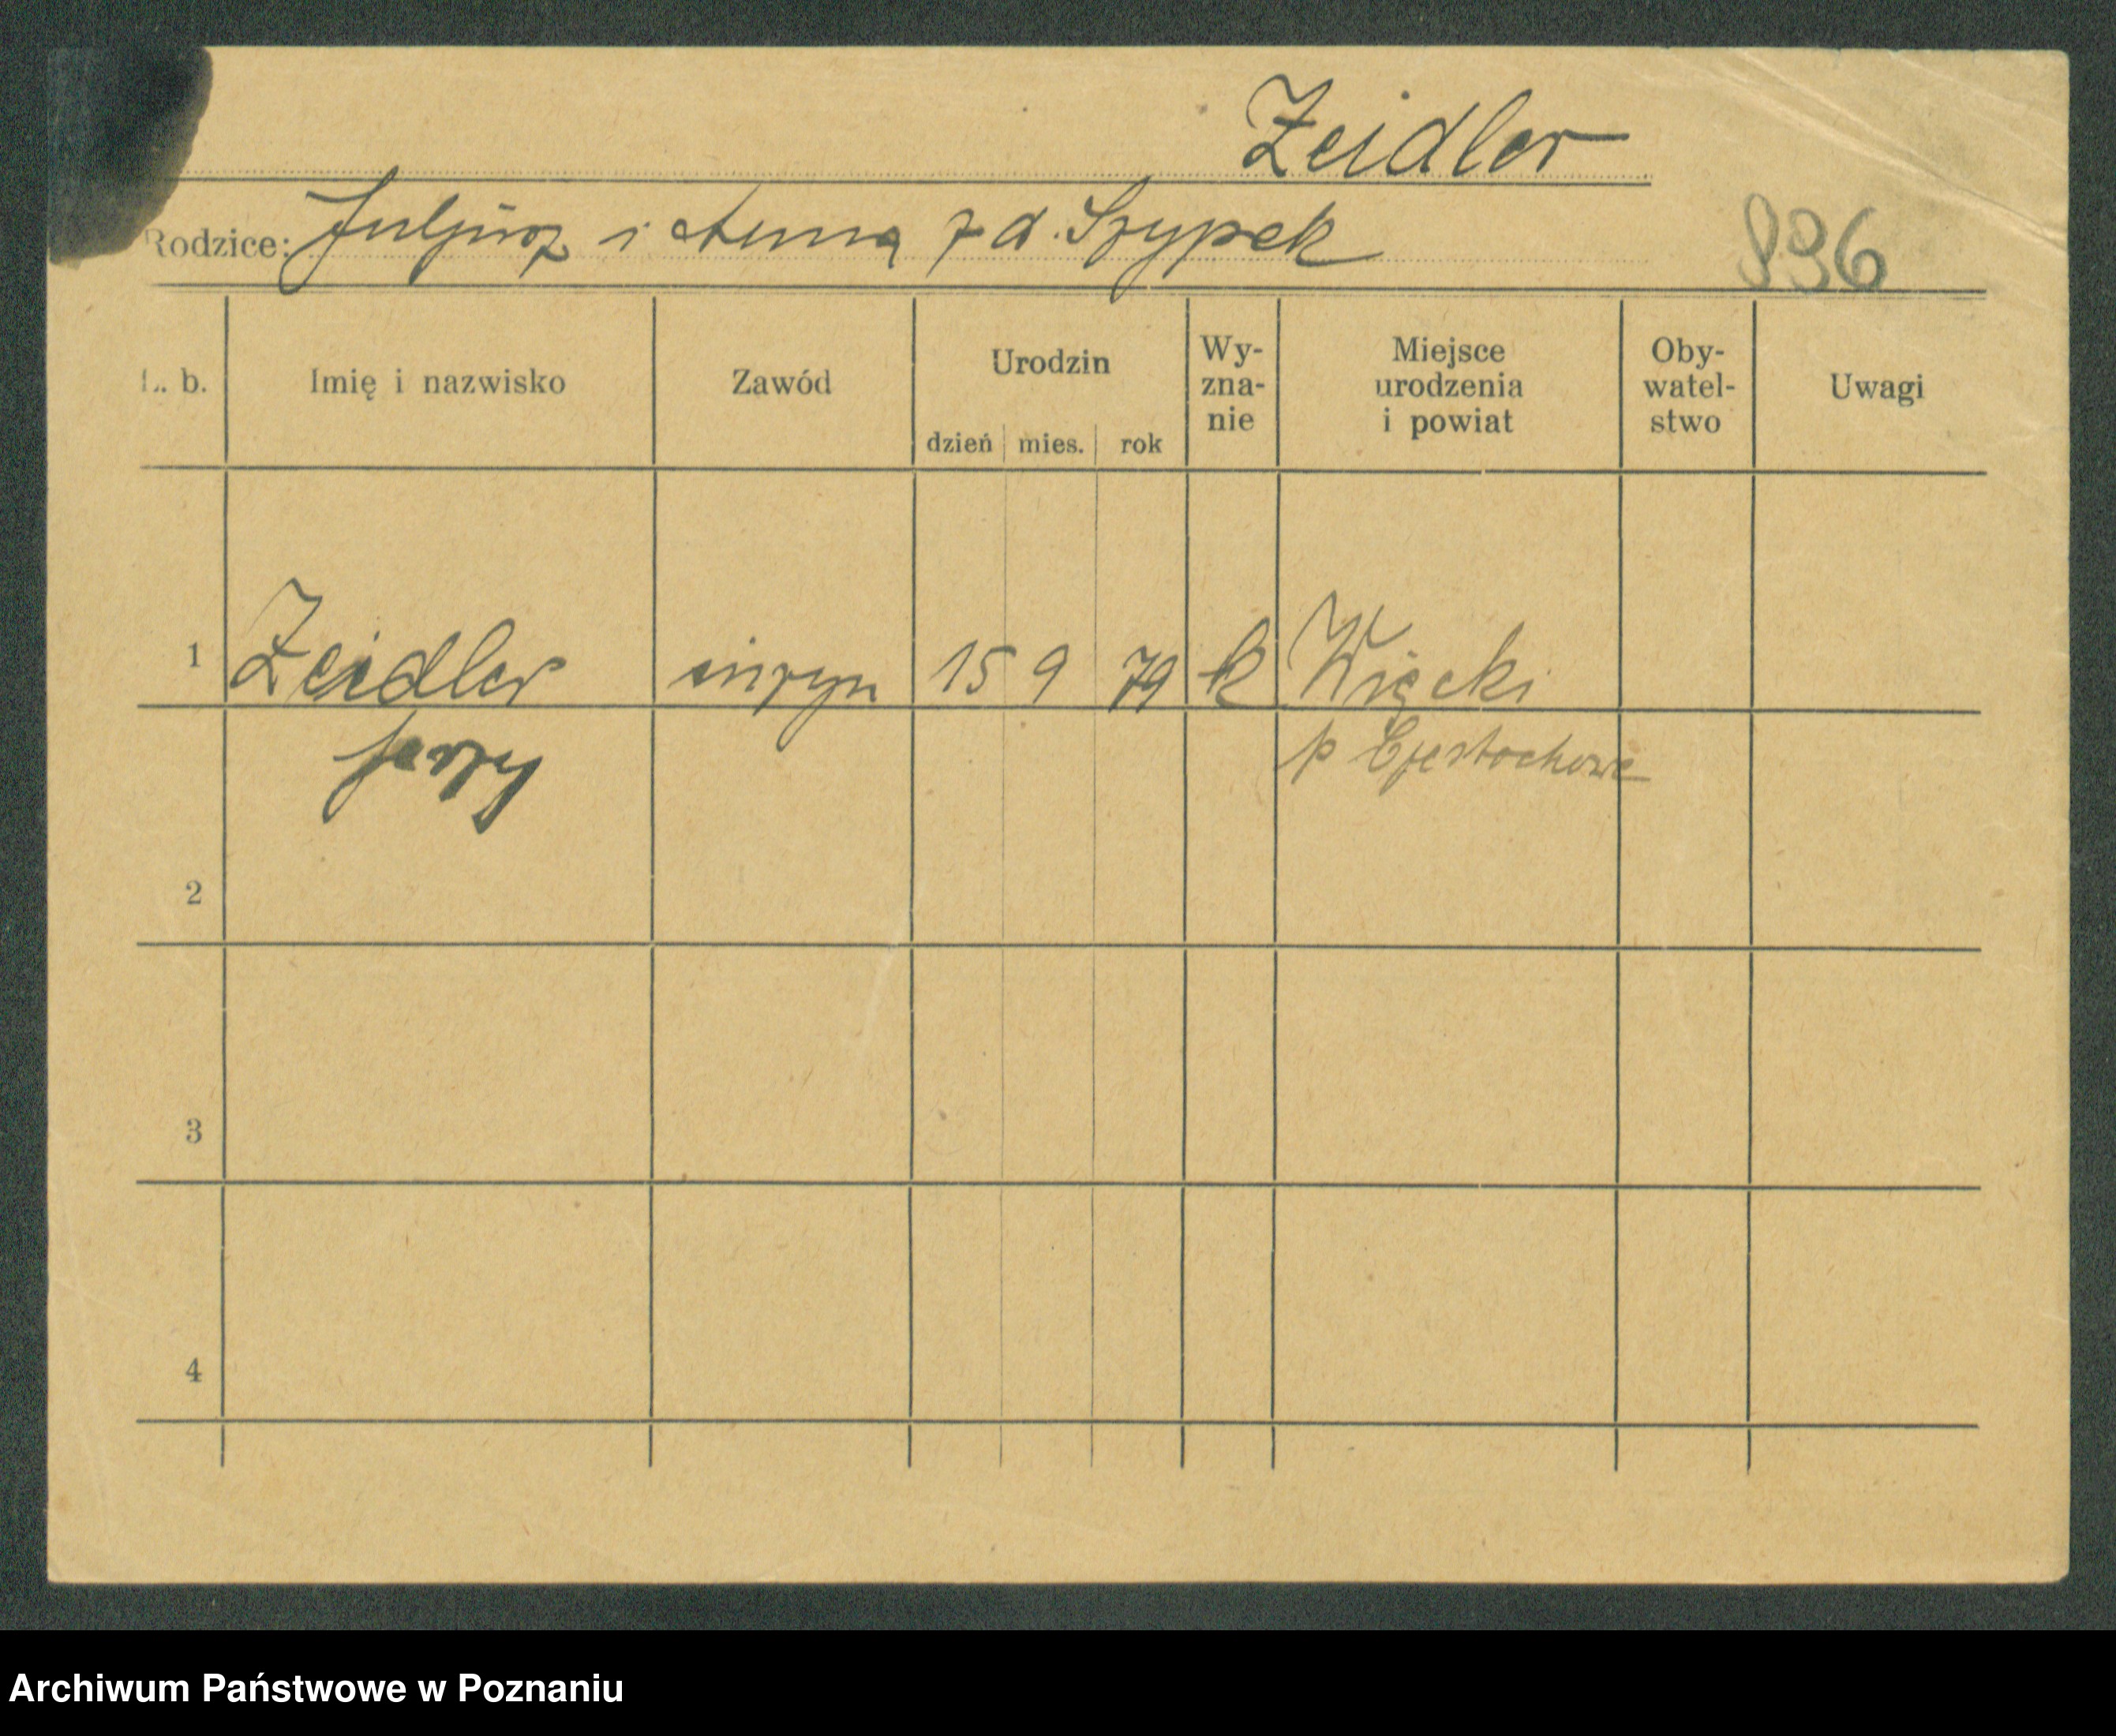 Zeidler
Rodzice: Juljusz i Anna z d. Szypek
936
L. b.
Imię i nazwisko
Zawód
Urodzin
dzień mies. rok
Wy-
zna-
nie
Miejsce
urodzenia
i powiat
Oby-
watel-
stwo
Uwagi
1 Zeidler inżyn 15 9 79 k Więcki
Jerzy p Częstochowa
2
3
4
Archiwum Państwowe w Poznaniu